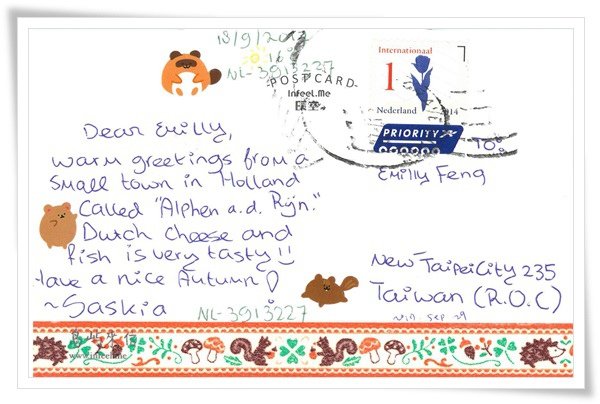 16°
NL-3913227
POSTCARD
InFeel.Me
Internationaal
1
Nederland 2014
PRIORITY
Dear Emilly,
warm greetings from a
small town in Holland
Called "Alphen a.d. Rijn."
Dutch cheese and
fish is very tasty!!
Have a nice Autumn!
~Saskia
NL-3913227
TO:
Emilly Feng
New Taipei City 235
Taiwan (R.O.C)
sep 29
www.infeel.me